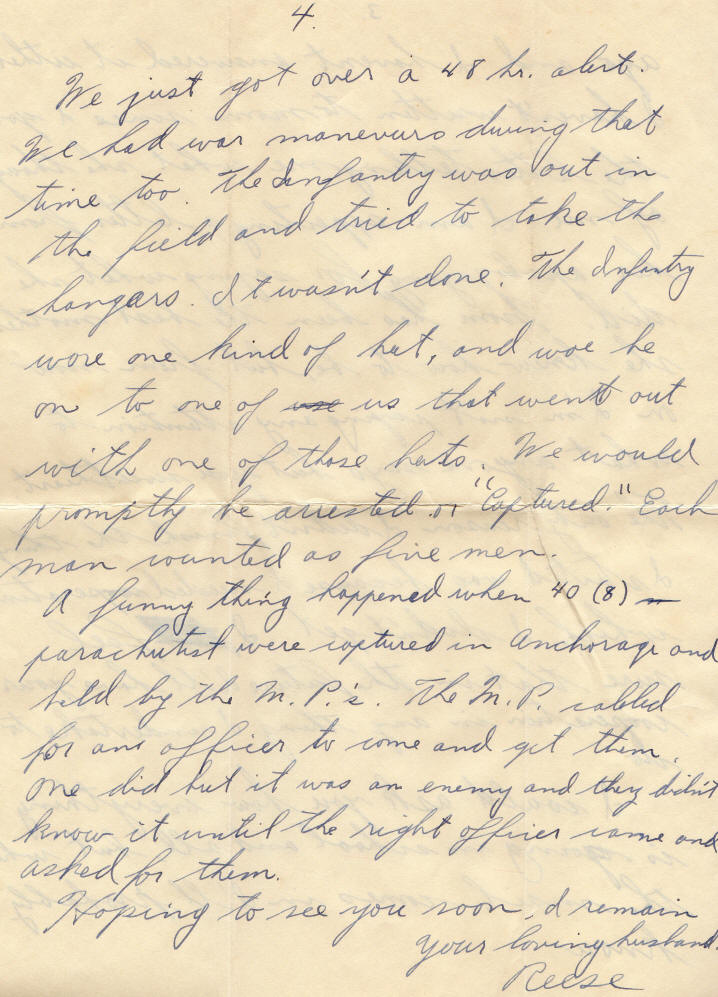 4.
We just got over a 48 hr. alert.
We had war manevurs during that
time too. The Infantry was out in
the field and tried to take the
hangars. It wasn't done. The Infantry
wore one kind of hat, and woe be
on to one of use us that went out
with one of those hats. We would
promptly be arrested or "Captured." Each
man counted as five men.
A funny thing happened when 40 (8)
parachutist were captured in Anchorage and
held by the M.P.'s. The M.P. called
for an officer to come and get them.
One did but it was an enemy and they didn't
know it until the right officer came and
asked for them.
Hoping to see you soon, I remain
your loving husband.
Reese